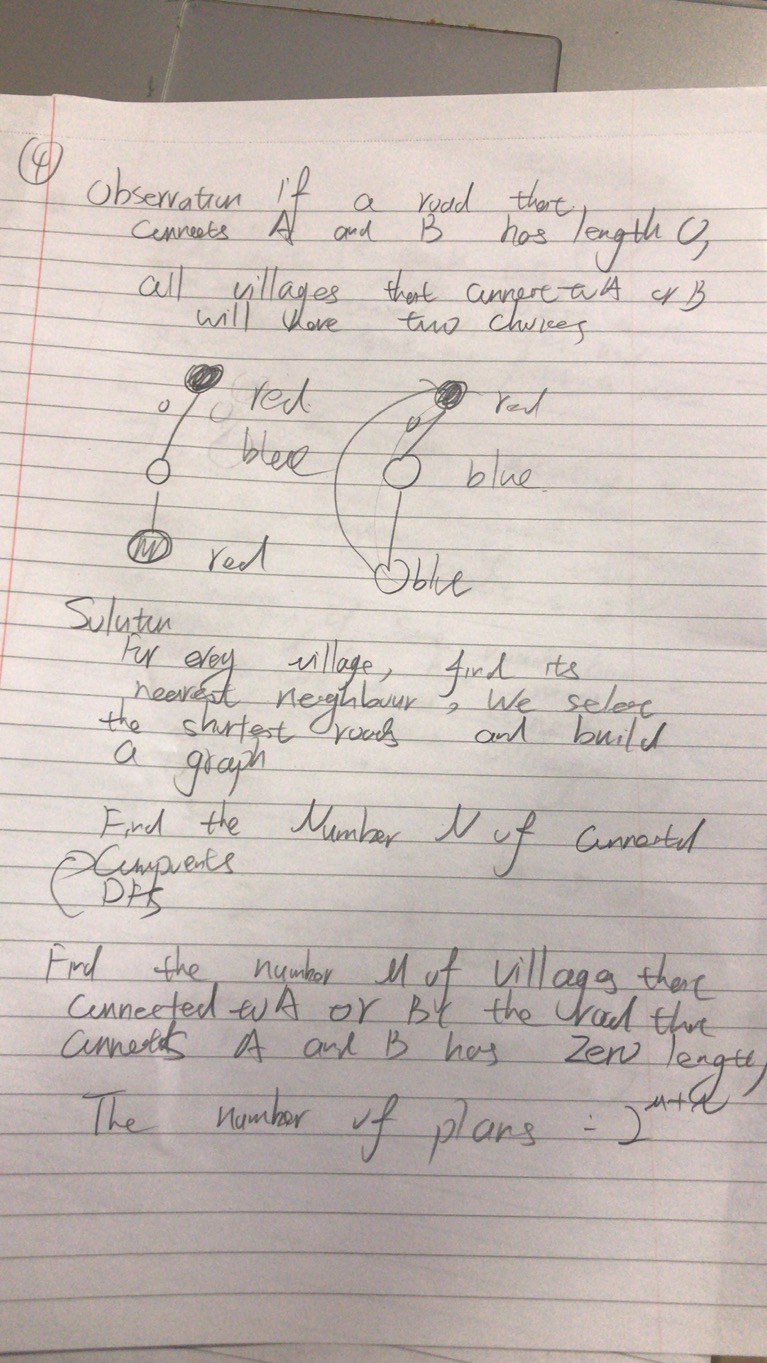 ④
Observation If a road that
connects A and B has length 0,
all villages that connect to A or B
will have two choices
0 red 0 red
blue blue
red blue
Solution
For every village, find its
nearest neighbour, We select
the shortest roads and build
a graph
Find the Number N of connected
Components
DFS
Find the number M of villages that
connected to A or B & the road that
connects A and B has zero length,
The number of plans = 2